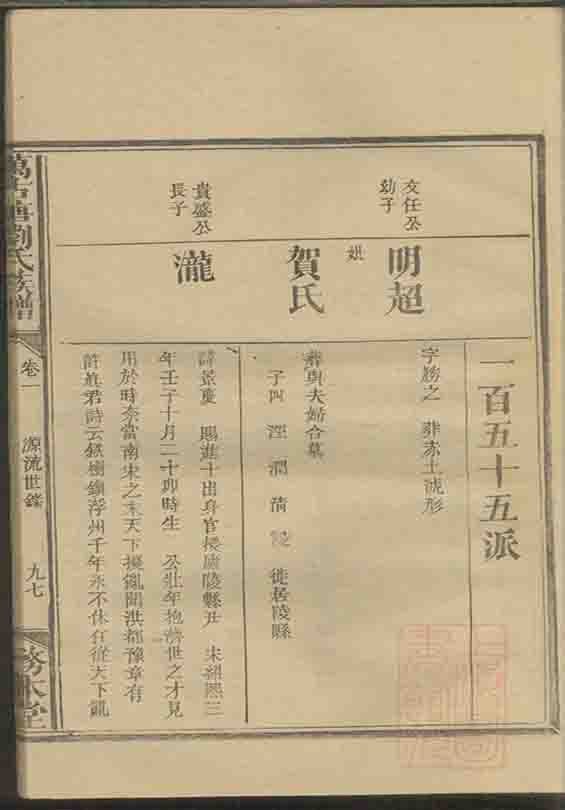 一百五十五派
文任公
幼子
明超
字勝之 葬赤土虎形
妣
賀氏
葬與夫婦合墓
子四 涇 潤 清 陵 徙居陵縣
貴盛公
長子
瀧
諱景慶 賜進士出身官授廬陵縣丞 宋紹熙三
年壬子十月二十卯時生 公壯年抱濟世之才見
用於時奈當南宋之末天下擾亂聞洪都豫章有
許真君詩云鉄樹鎮浮州千年永不休任從天下亂
劉氏族譜
卷一
源流世錄
九七
務本堂